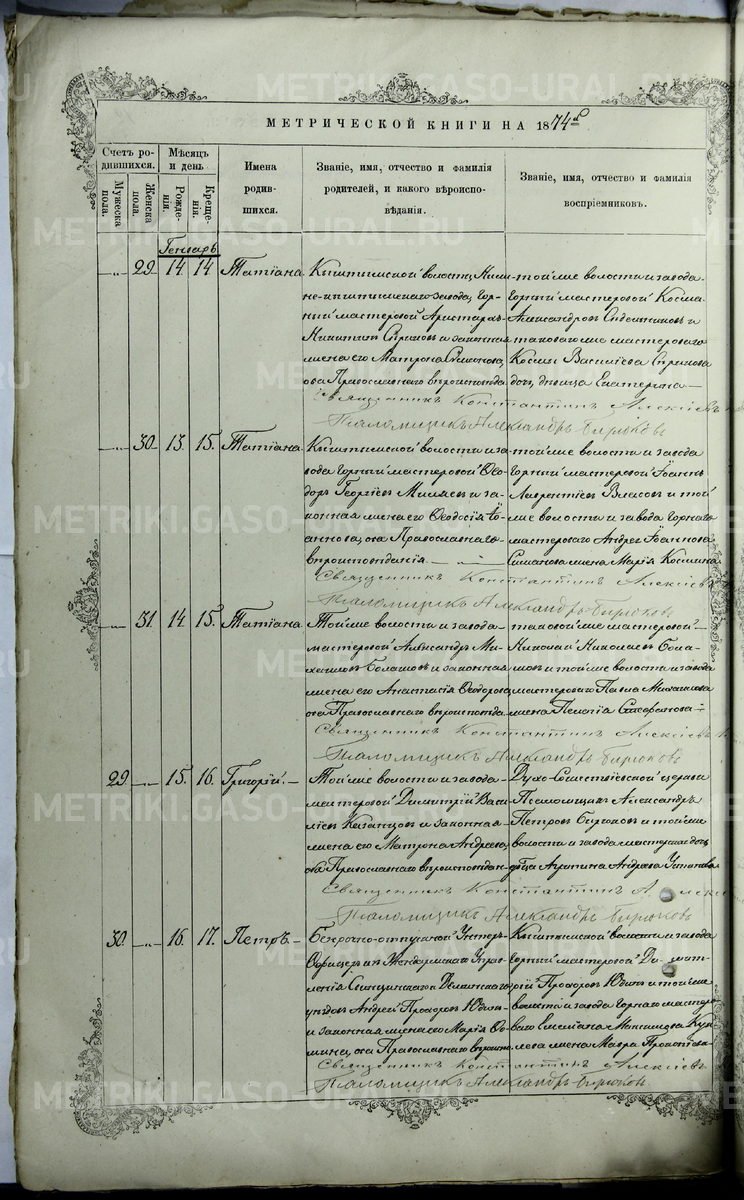 МЕТРИЧЕСКОЙ КНИГИ НА 1874й
Счетъ родившихся.
Мужеска пола.
Женска пола.
Мѣсяцъ и день
Рожденія.
Крещенія.
Имена родившихся.
Званіе, имя, отчество и фамилія родителей, и какого вѣроисповѣданія.
Званіе, имя, отчество и фамилія воспріемниковъ.
Генварь
29 14 14 Татіана.
Кыштымской волости,
завода, Гор-
ный мастеровой Аристархъ
Никитинъ и законная
жена его Матрона
ова Православнаго вѣроисповѣда
той же волости и завода
Горный мастеровой Косма
Александровъ Сидельниковъ и
таковаго же мастероваго
Космы Василіева
дочь, дѣвица Екатерина
Священникъ Константинъ Алексіевъ
Псаломщикъ Александръ Бирюковъ
30. 13. 15. Татіана
Кыштымской волости и за-
вода Горный мастеровой Ѳео-
доръ Георгіевъ и за-
конная жена его Ѳеодосія Іо-
аннова, оба Православнаго
вѣроисповѣданія.
той же волости и завода
Горный мастеровой Іоаннъ
Лаврентіевъ Власовъ и той
же волости и завода Горнаго
мастероваго Андрея Іоаннова
жена Марія Космина
Священникъ Константинъ Алексіевъ
Псаломщикъ Александръ Бирюковъ
31. 14 15. Татіана
Той же волости и завода
мастеровой Александръ Ми-
хаиловъ и законная
жена его Анастасія Ѳеодорова,
оба Православнаго вѣроисповѣда
таковой же мастеровой
Николай Николаевъ
и той же волости и завода
мастероваго Павла
жена Пелагія Стефанова
Священникъ Константинъ Алексіевъ
Псаломщикъ Александръ Бирюковъ
29 15. 16. Григорій.
Той же волости и завода
мастеровой Димитрій Васи-
ліевъ Казанцовъ и законная
жена его Матрона Андреева,
оба Православнаго вѣроисповѣдан
Духо-Сошествіевской церкви
Псаломщикъ Александръ
Петровъ Бирюковъ и той же
волости и завода мастерская дочь
дѣвица Агрипина Андреева
Священникъ Константинъ Алексі
Псаломщикъ Александръ Бирюковъ
30. 16. 17. Петръ.
Безсрочно-отпускной Унтеръ-
Офицеръ Жандармскаго Управ-
ленія
уѣздовъ Андрей Прохоровъ Юдинъ
и законная жена его Марія Ѳо-
мина, оба Православнаго вѣроиспо
Кыштымской волости и завода
Горный мастеровой Димит-
рій Прохоровъ Юдинъ и той же
волости и завода Горнаго мастеро-
ваго Емеліана
жена Мавра Прокопіева
Священникъ Константинъ Алексіевъ
Псаломщикъ Александръ Бирюковъ
METRIKI.GASO-URAL.RU